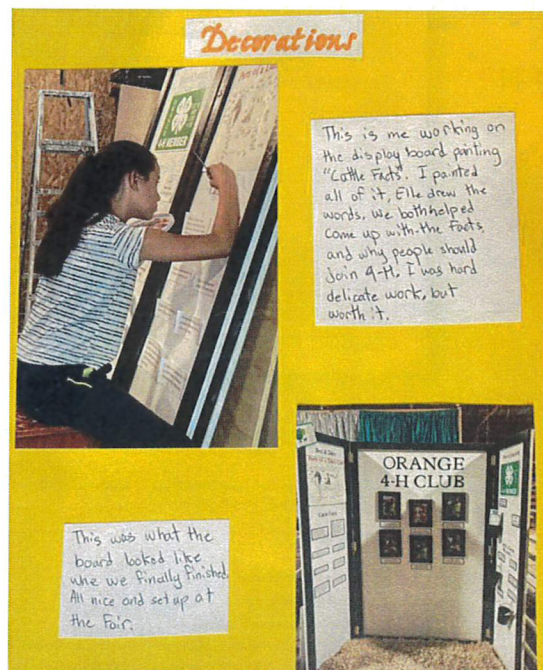 Decorations
4-H MEMBER
This is me working on
the display board panting
"Cattle Facts". I painted
all of it, Elle drew the
words, we both helped
come up with the facts,
and why people should
join 4-H. I was hard
delicate work, but
worth it.
ORANGE
4-H CLUB
Cattle Facts
This was what the
board looked like
whe we finally finished.
All nice and set up at
the Fair.